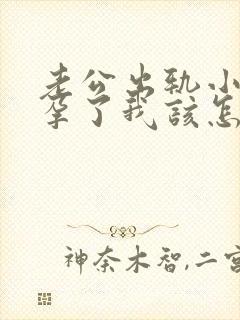 老公出轨小
孕了我该怎
神奈木智,二宫